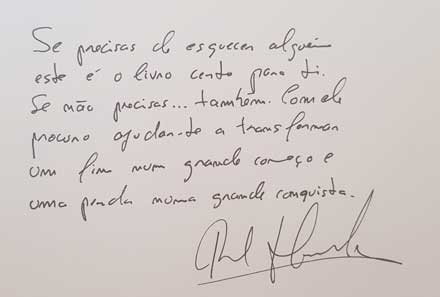 Se precisas de esquecer alguém
este é o livro certo para ti.
Se não precisas... também. Com ele
procuro ajudar-te a transformar
um fim num grande começo e
uma perda numa grande conquista.